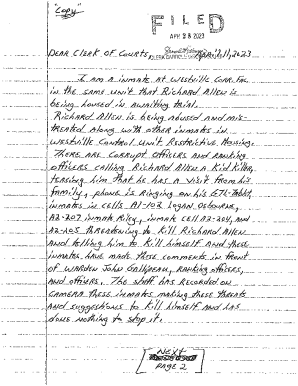 "Copy"
FILED
APR 28 2023
DEAR CLERK OF COURTS, April 11, 2023
I am a inmate at Westville Corr. Fac.
in the same unit that Richard Allen is
being housed in awaiting trial.
Richard Allen is being abused and mis-
treated along with other inmates in
Westville Control Unit Restrictive Housing.
There are corrupt officers and ranking
officers calling Richard Allen a Kid Killer,
teasing him that he has a visit from his
family, phone is ringing on his GTL-Tablet,
inmates in cells A1-102 Logan Osbourne,
A2-207 inmate Riley, inmate cell A2-204, and
A2-105 threatening to Kill Richard Allen
and telling him to Kill himself and these
inmates have made these comments in front
of Warden John Galipeau, ranking officers,
and officers. The staff has recorded on
camera these inmates making these threats
and suggestions to Kill himself and has
done nothing to stop it.
NEXT
PAGE 2